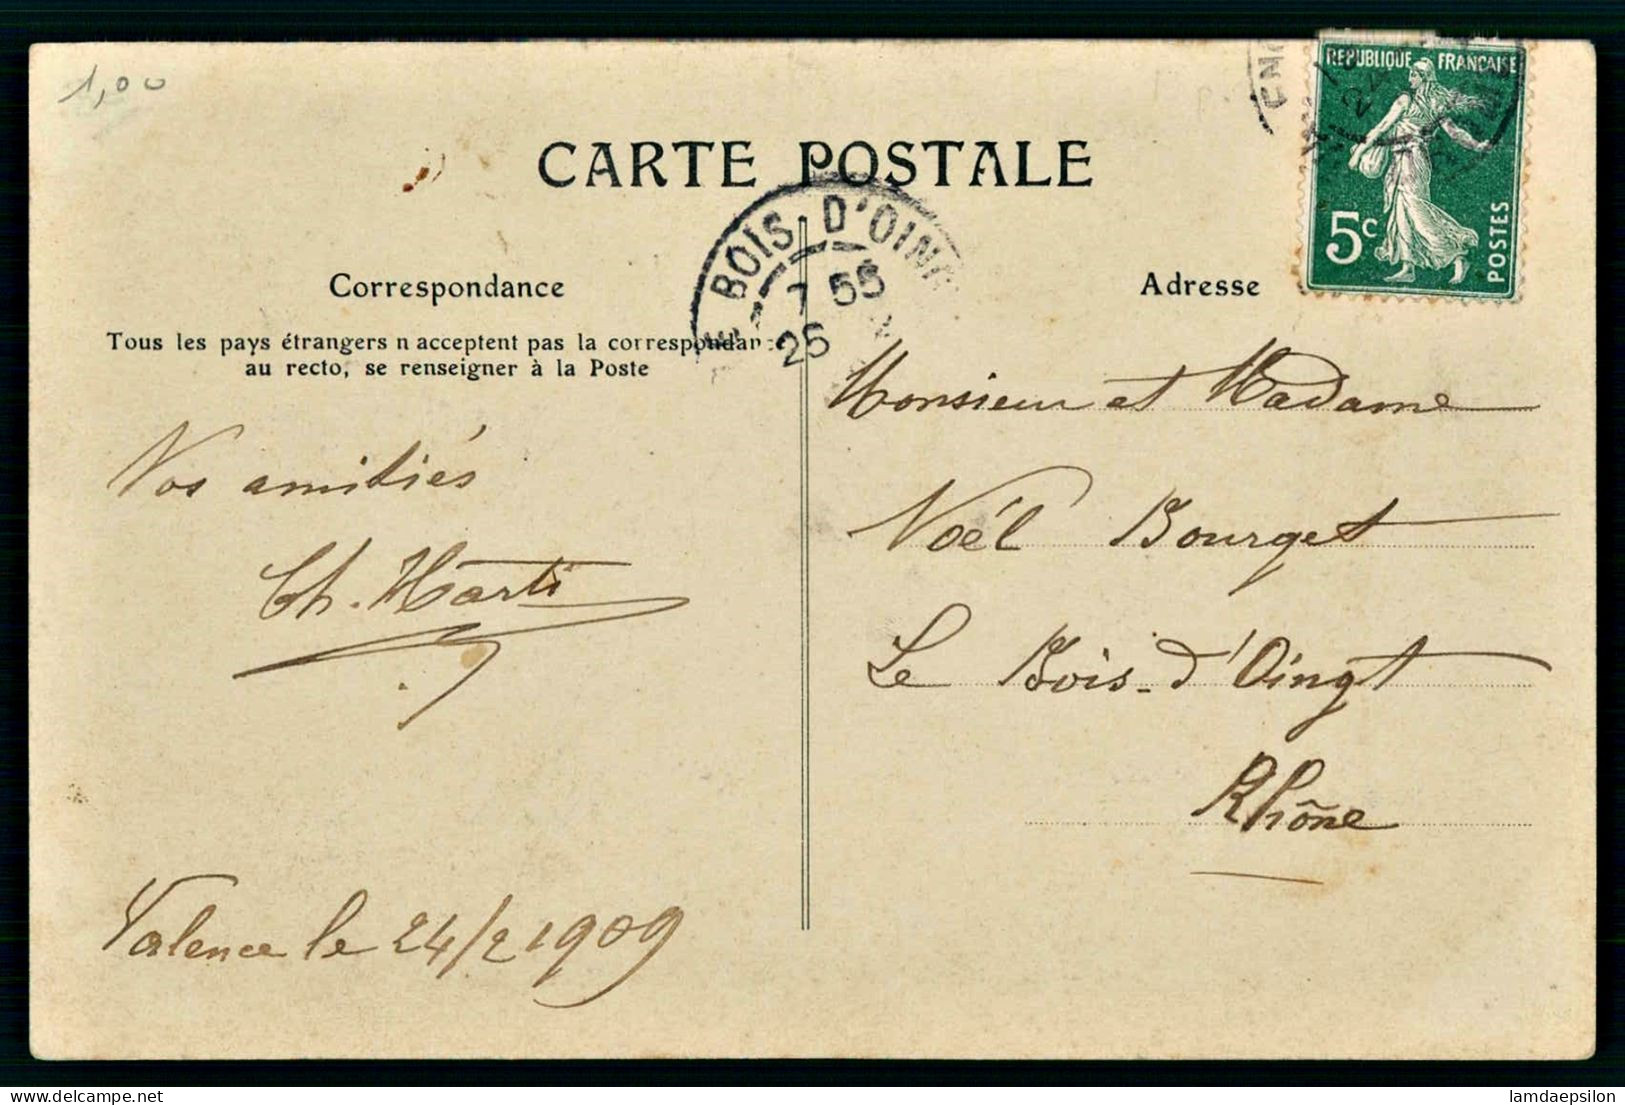 1,00
CARTE POSTALE
REPUBLIQUE FRANÇAISE
5c
POSTES
BOIS D'OING
7 55
25
Correspondance
Tous les pays étrangers n acceptent pas la correspondance
au recto, se renseigner à la Poste
Nos amitiés
Ch. Marti
Valence le 24/2 1909
Adresse
Monsieur et Madame
Noél Bourget
Le Bois-d'Oingt
Rhône
lamdaepsilon